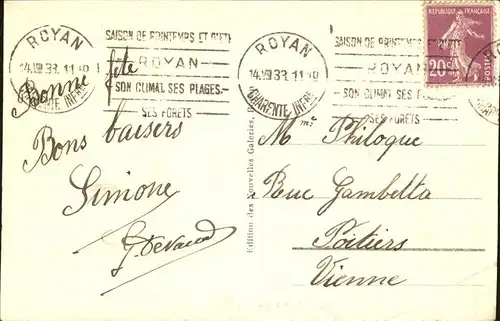 ROYAN
14.VIII 33. 11-10
CHARENTE INFRE
SAISON DE PRINTEMPS ET D'ÉTÉ
ROYAN
SON CLIMAT SES PLAGES
SES FORETS
ROYAN
14.VIII 33. 11-10
CHARENTE INFRE
SAISON DE PRINTEMPS
ROYAN
SON CLIMAT SES PLAGES
SES FORETS
REPUBLIQUE FRANÇAISE
20c
POSTES
Bonne fête
Bons baisers
Simone
Edition des Nouvelles Galeries,
Mme Philoque
Rue Gambetta
Poitiers
Vienne